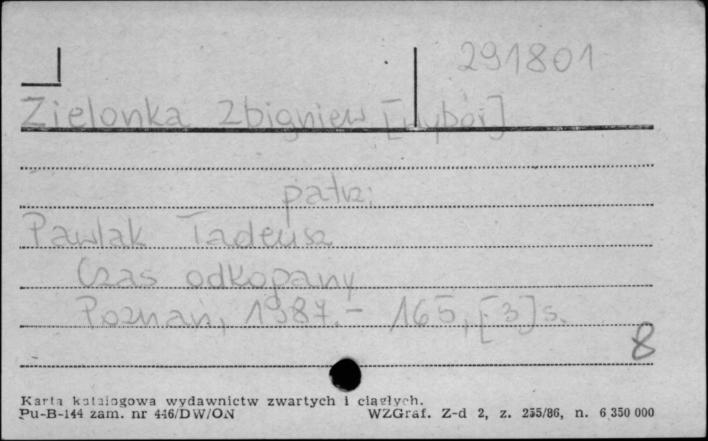 291801
Zielonka Zbigniew [wybór]
patrz:
Pawlak Tadeusz
Czas odkopany
Poznań, 1987.- 165, [3] s.
8
Karta katalogowa wydawnictw zwartych i ciągłych.
Pu-B-144 zam. nr 446/DW/ON WZGraf. Z-d 2, z. 255/86, n. 6 350 000